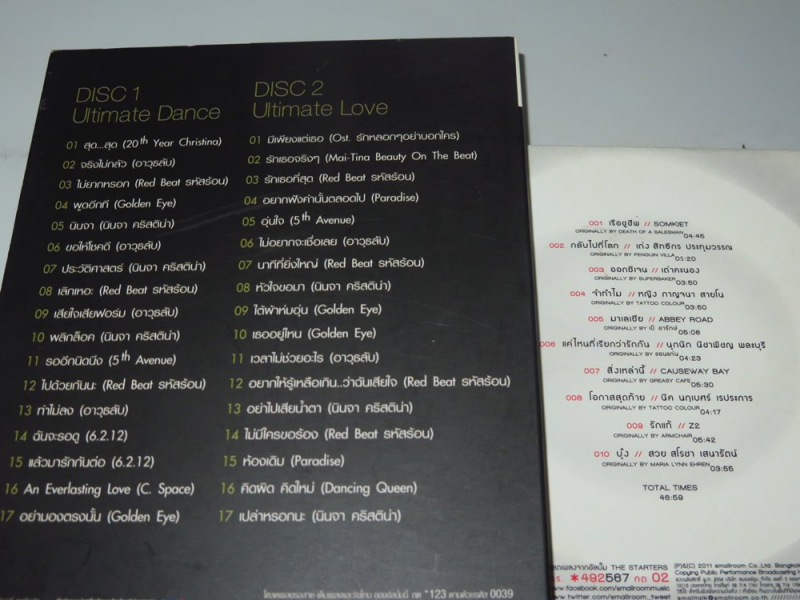 DISC 1
Ultimate Dance
01 สุด...สุด (20th Year Christina)
02 จริงไม่กลัว (อาวุธลับ)
03 ไม่ยากหรอก (Red Beat รหัสร้อน)
04 พูดอีกที (Golden Eye)
05 นินจา (นินจา คริสติน่า)
06 ขอให้โชคดี (อาวุธลับ)
07 ประวัติศาสตร์ (นินจา คริสติน่า)
08 เลิกเหอะ (Red Beat รหัสร้อน)
09 เสียใจเสียฟอร์ม (อาวุธลับ)
10 พลิกล็อค (นินจา คริสติน่า)
11 รออีกนิดนึง (5th Avenue)
12 ไปด้วยกันนะ (Red Beat รหัสร้อน)
13 ทำไม่ลง (อาวุธลับ)
14 ฉันจะรอดู (6.2.12)
15 แล้วมารักกันต่อ (6.2.12)
16 An Everlasting Love (C. Space)
17 อย่ามองตรงนั้น (Golden Eye)
DISC 2
Ultimate Love
01 มีเพียงแต่เธอ (Ost. รักหลอกๆอย่าบอกใคร)
02 รักเธอจริงๆ (Mai-Tina Beauty On The Beat)
03 รักเธอที่สุด (Red Beat รหัสร้อน)
04 อยากฟังคำนั้นตลอดไป (Paradise)
05 อุ่นใจ (5th Avenue)
06 ไม่อยากจะเชื่อเลย (อาวุธลับ)
07 นาทีที่ยิ่งใหญ่ (Red Beat รหัสร้อน)
08 หัวใจขอมา (นินจา คริสติน่า)
09 ใต้ผ้าห่มอุ่น (Golden Eye)
10 เธออยู่ไหน (Golden Eye)
11 เวลาไม่ช่วยอะไร (อาวุธลับ)
12 อยากให้รู้เหลือเกิน..ว่าฉันเสียใจ (Red Beat รหัสร้อน)
13 อย่าไปเสียน้ำตา (นินจา คริสติน่า)
14 ไม่มีใครขอร้อง (Red Beat รหัสร้อน)
15 ห้องเดิม (Paradise)
16 คิดผิด คิดใหม่ (Dancing Queen)
17 เปล่าหรอกนะ (นินจา คริสติน่า)
*123 ตามด้วยรหัส 0039
001 เรือชูชีพ // SOMKIET
ORIGINALLY BY DEATH OF A SALESMAN 04:45
002 กลับไปที่โลก // เก่ง สิทธิกร ประทุมวรรณ
ORIGINALLY BY PENGUIN VILLA 01:20
003 ออกซิเจน // เก่าคะนอง
ORIGINALLY BY SUPERBAKER 03:50
004 จำทำไม // หญิง กาญจนา สายโน
ORIGINALLY BY TATTOO COLOUR 03:50
005 มาเลเซีย // ABBEY ROAD
ORIGINALLY BY เป้ อารักษ์ 05:08
006 แค่ไหนที่เรียกว่ารักกัน // นุกนิก นิชาพิชญ พละบุรี
ORIGINALLY BY 04:23
007 สิ่งเหล่านี้ // CAUSEWAY BAY
ORIGINALLY BY GREASY CAFE 05:30
008 โอกาสสุดท้าย // นิค นฤเบศร์ เรประการ
ORIGINALLY BY TATTOO COLOUR 04:17
009 รักแท้ // Z2
ORIGINALLY BY ARMCHAIR 05:42
010 บุ๋ง // สวย สโรชา เสนารัตน์
ORIGINALLY BY MARIA LYNN EHREN 03:55
TOTAL TIMES
46:59
เพลงจากอัลบั้ม THE STARTERS
*492567 กด 02
www.facebook.com/smallroommusic
www.twitter.com/smallroom_tweet
(P)&(C) 2011 smallroom Co., Ltd. Bangkok
Copying Public Performance Broadcasting